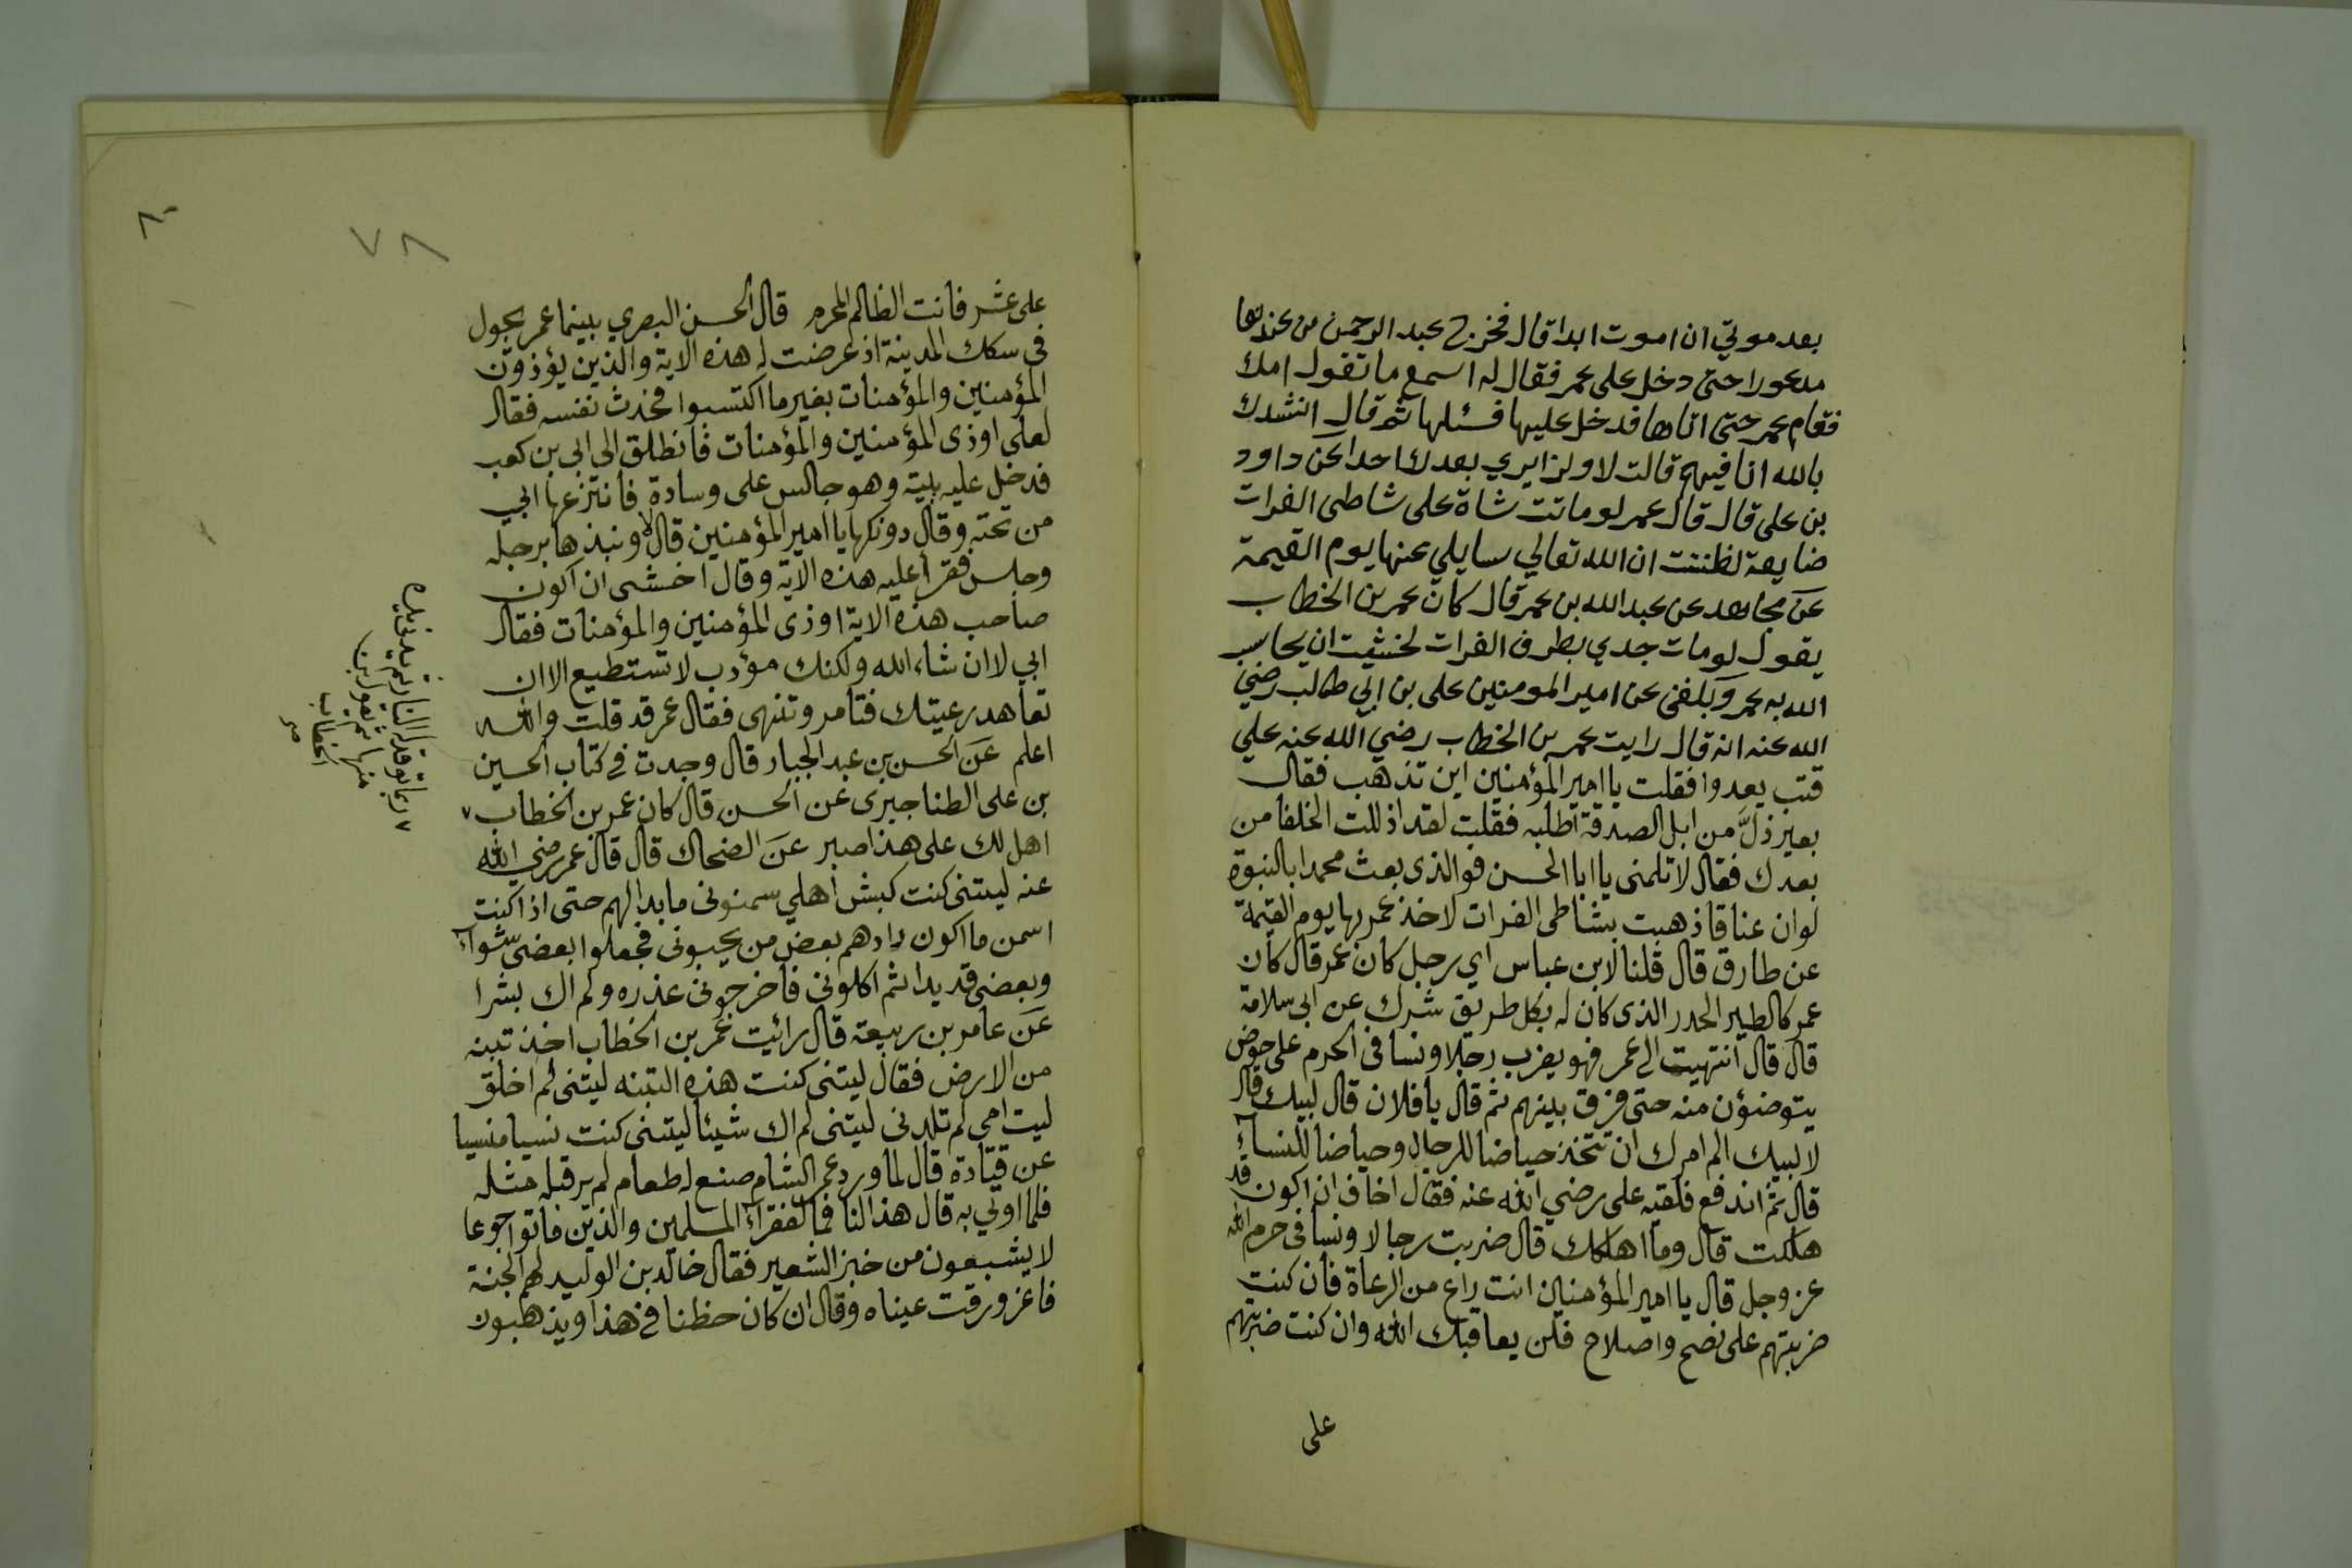 بعد موتي ان اموت ابدا قال فخرج عبد الرحمن من عندها
مدعورا حتى دخل على عمر فقال له اسمع ما تقول امك
فقام عمر حتى اتاها فدخل عليها فسئلها ثم قال انشدك
بالله انا فيهم قالت لا ولن ابري بعدك احدا عن داود
بن على قال قال عمر لو ماتت شاة على شاطى الفرات
ضايعة لظننت ان الله تعالي سايلي عنها يوم القيمة
عن مجاهد عن عبد الله بن عمر قال كان عمر بن الخطاب
يقول لو مات جدي بطرف الفرات لخشيت ان يحاسب
الله به عمر وبلغنى عن امير المومنين على بن ابي طالب رضي
الله عنه انه قال رايت عمر بن الخطاب رضي الله عنه علي
قتب يعدوا فقلت يا امير المؤمنين اين تذهب فقال
بعير ندّ من ابل الصدقة اطلبه فقلت لقد اذللت الخلفا من
بعدك فقال لا تلمنى يا ابا الحسن فوالذى بعث محمدا بالنبوة
لو ان عناقا ذهبت بشاطى الفرات لاخذ عمر بها يوم القيمة
عن طارق قال قلنا لابن عباس اي رجل كان عمر قال كان
عمر كالطير الحدر الذى كان له بكل طريق شرك عن ابى سلامة
قال قال انتهيت الى عمر فهو يضرب رجلا ونسا فى الحرم على حوض
يتوضؤن منه حتى فرق بينهم ثم قال يا فلان قال لبيك قال
لا لبيك الم امرك ان تتخذ حياضا للرجال وحياضا للنسآء
قال ثم اندفع فلقيه على رضي الله عنه فقال اخاف ان اكون قد
هلكت قال وما اهلكك قال ضربت رجالا ونسا فى حرم الله
عز وجل قال يا امير المؤمنين انت راع من الرعاة فان كنت
ضربتهم على نصح واصلاح فلن يعاقبك الله وان كنت ضربتهم
على
٨٠
٧٨
على غش فانت الظالم المجرم قال الحسن البصري بينما عمر يجول
فى سكك المدينة اذ عرضت له هذه الاية والذين يؤذون
المؤمنين والمؤمنات بغير ما اكتسبوا فحدث نفسه فقال
لعلى اوذى المؤمنين والمؤمنات فانطلق الى ابي بن كعب
فدخل عليه بيته وهو جالس على وسادة فانتزعها ابي
من تحته وقال دونكها يا امير المؤمنين قال لا ونبذها برجله
وجلس فقرأ عليه هذه الاية وقال اخشى ان اكون
صاحب هذه الاية اوذى المؤمنين والمؤمنات فقال
ابي لا ان شاء الله ولكنك مؤدب لا تستطيع الا ان
تعاهد رعيتك فتامر وتنهى فقال عمر قد قلت والله
اعلم عن الحسن بن عبد الجبار قال وجدت فى كتاب الحسين
بن على الطناجيرى عن الحسن قال كان عمر بن الخطاب ٧
اهل لك على هذا صبر عن الضحاك قال قال عمر رضي الله
عنه ليتنى كنت كبش اهلي سمنونى ما بدا لهم حتى اذا كنت
اسمن ما اكون زارهم بعض من يحبونى فجعلوا بعضى شوآء
وبعضى قديدا ثم اكلونى فاخرجونى عذره ولم اك بشرا
عن عامر بن ربيعة قال رائيت عمر بن الخطاب اخذ تبنه
من الارض فقال ليتنى كنت هذه التبنه ليتنى لم اخلق
ليت امي لم تلدنى ليتنى لم اك شيئا ليتنى كنت نسيا منسيا
عن قتادة قال لما ورد عمر الشام صنع له طعام لم ير قبله مثله
فلما اوتي به قال هذا لنا فما لفقرآء المسلمين والذين ماتوا جوعا
لا يشبعون من خبز الشعير فقال خالد بن الوليد لهم الجنة
فاغرورقت عيناه وقال ان كان حظنا فى هذا ويذهبون
٧ ربما توقد النار ثم يدنى يده
منها ثم يقول ابن
الخطاب
صح